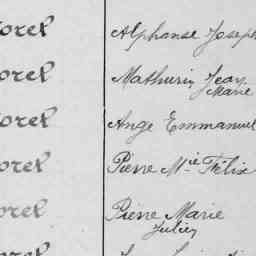 orel Alphonse Joseph
orel Mathurin Jean
Marie
orel Ange Emmanuel
orel Pierre Mie Félix
orel Pierre Marie
Julien
orel